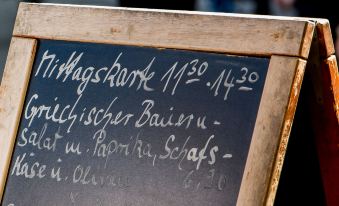 Mittagskarte 11³⁰-14³⁰
Griechischer Bauern-
salat m. Paprika, Schafs-
Käse u. Oliven 6,30